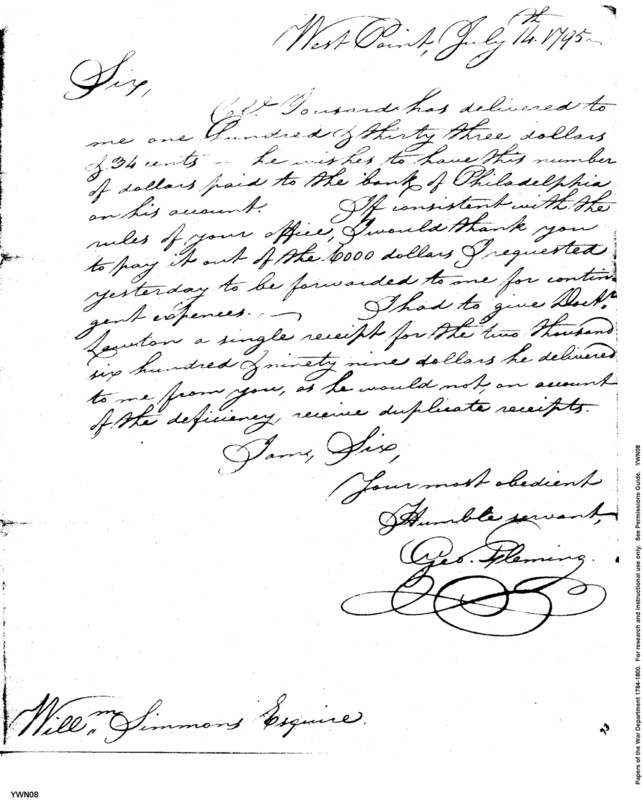 West Point, July 14th. 1795
Sir,
Col. Tousard has delivered to
me one hundred & thirty three dollars
& 34 cents — he wishes to have this number
of dollars paid to the bank of Philadelphia
on his account. If consistent with the
rules of your office, I would thank you
to pay it out of the 6000 dollars I requested
yesterday to be forwarded to me for contin
gent expences. — I had to give Doctr.
Lawton a single receipt for the two thousand
six hundred & ninety nine dollars he delivered
to me from you, as he would not, on account
of the deficiency, receive duplicate receipts.
I am, Sir,
Your most obedient
& Humble servant,
Geo. Fleming.
Willm. Simmons Esquire.
YWN08
Papers of the War Department 1784-1800. For research and instructional use only. See Permissions Guide. YWN08